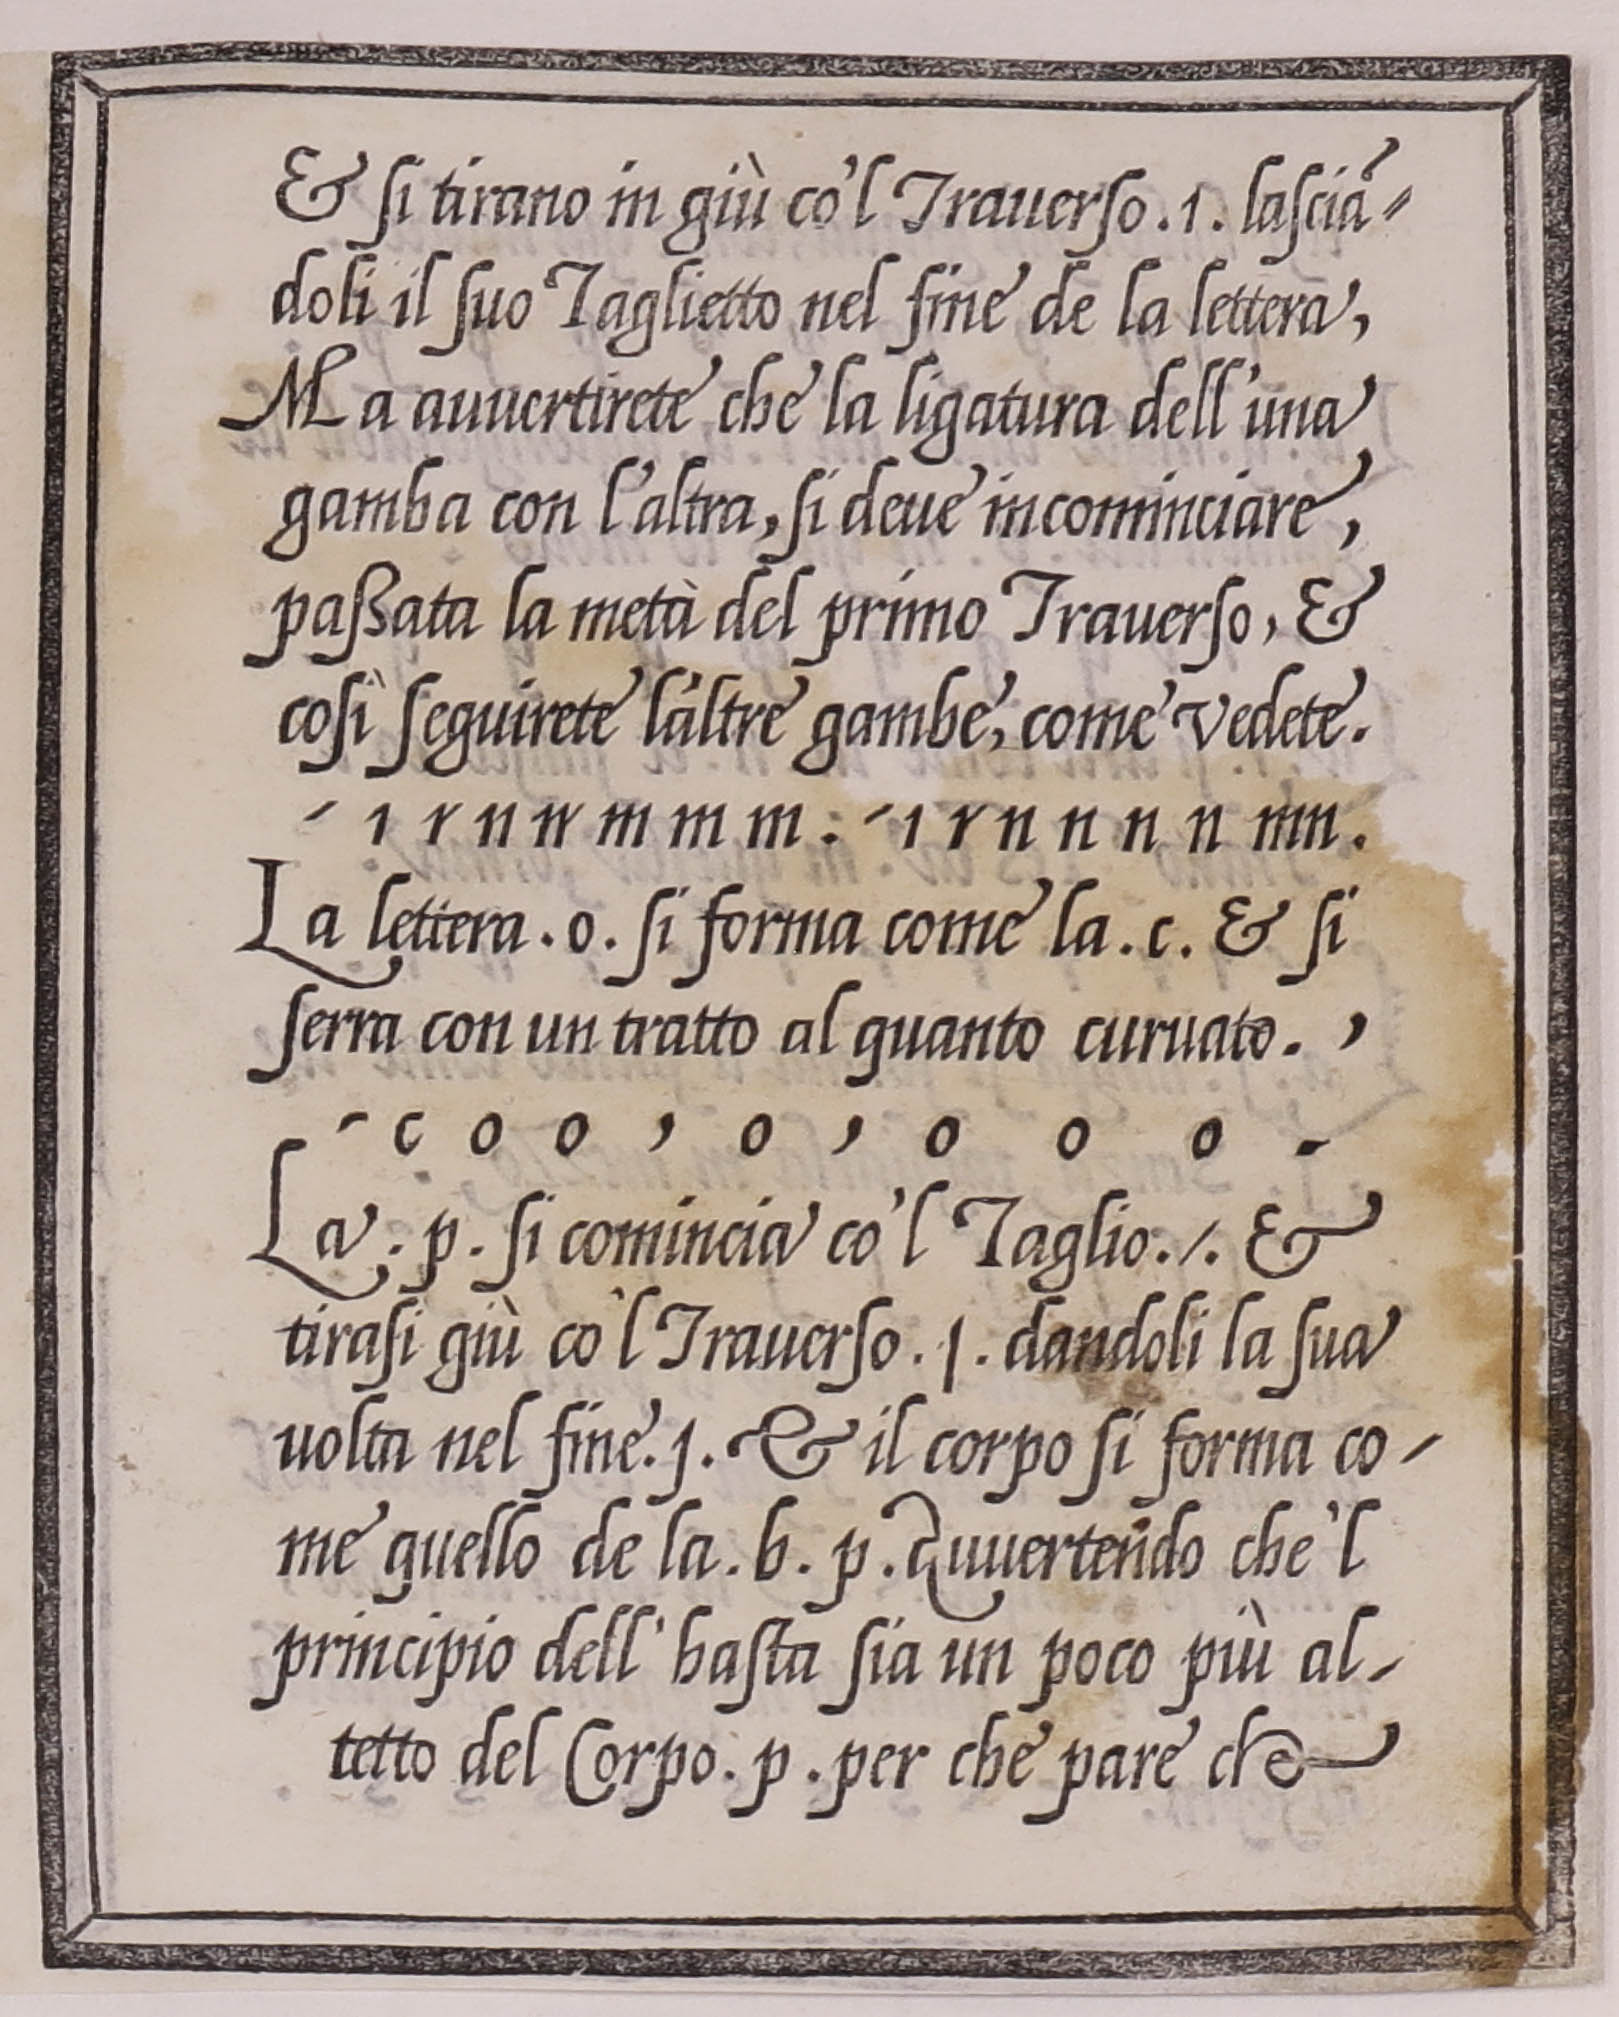 & si tirano in giù co'l Trauerso . ı . lasciā-
doli il suo Taglietto nel fine de la lettera,
Ma auuertirete che la ligatura dell'una
gamba con l'altra, si deue incominciare,
paßata la metà del primo Trauerso, &
così seguirete l'altre gambe, come vedete.
ˊ ı r n n m m m . ˊ ı r n n n n mn .
La lettera . o . si forma come la . c . & si
serra con un tratto al quanto curuato . ,
- c o o , o , o o o .
La . p . si comincia co'l Taglio . / . &
tirasi giù co'l Trauerso . ſ . dandoli la sua
uolta nel fine . ȷ . & il corpo si forma co-
me quello de la . b . p . Auuertendo che'l
principio dell'hasta sia un poco più al-
tetto del Corpo . p . per che pare che